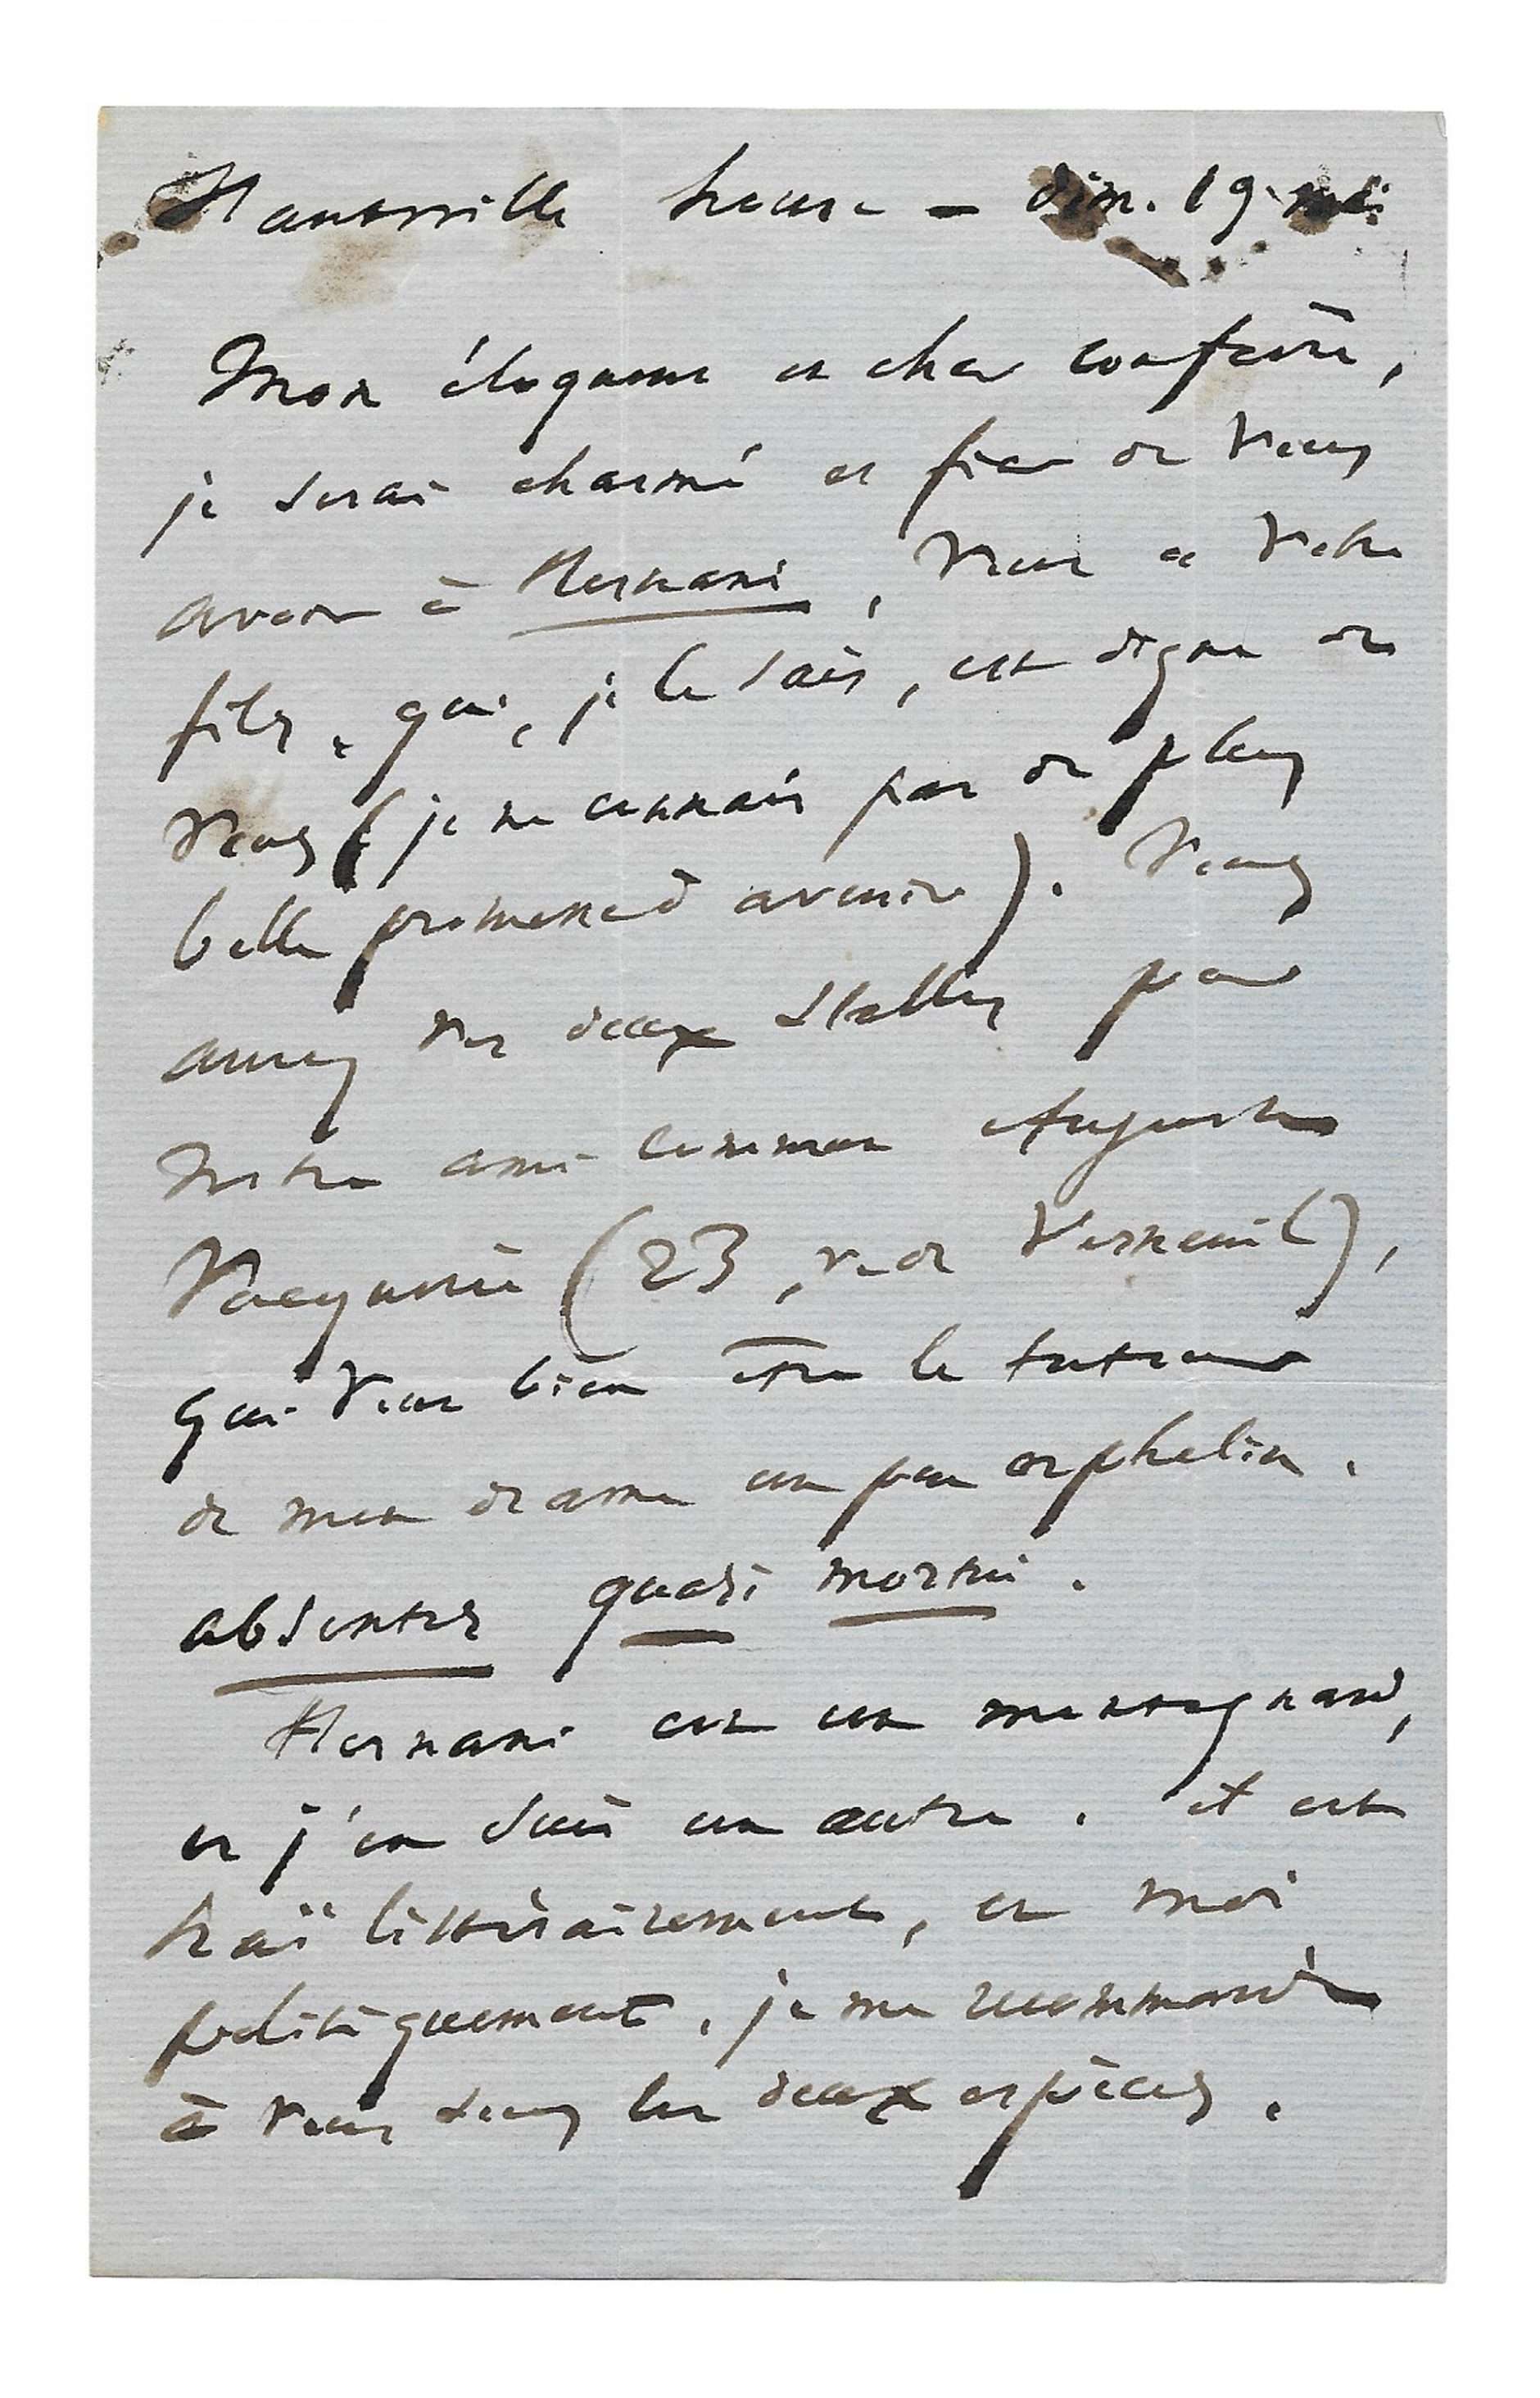 Hauteville house – dim. 19 mai
Mon éloquent et cher confrère,
je serai charmé et fier de vous
avoir à Hernani, vous et votre
fils, qui, je le sais, est digne de
vous (je ne connais pas de plus
belle promesse d'avenir). Vous
aurez vos deux stalles par
notre ami commun Auguste
Vacquerie (23, r. de Verneuil),
qui veut bien être le tuteur
de mon drame un peu orphelin.
absentes quasi mortui.
Hernani est un montagnard,
et j'en suis un autre. il est
haï littérairement, et moi
politiquement. je me recommande
à vous sous les deux espèces.